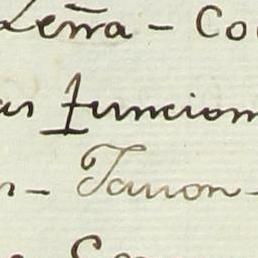 Leña - Co
as funcion
n - Tauon -